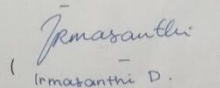 Irmasanthi
( Irmasanthi D.